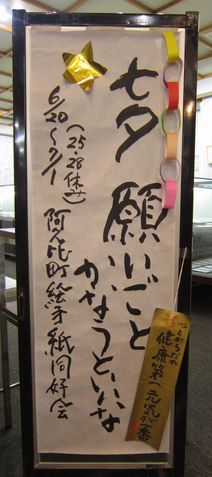 七夕 願いごと
かなうといいな
(25・28休)
6/20～7/1 阿久比町絵手紙同好会
心とからだの
健康第一元気一番